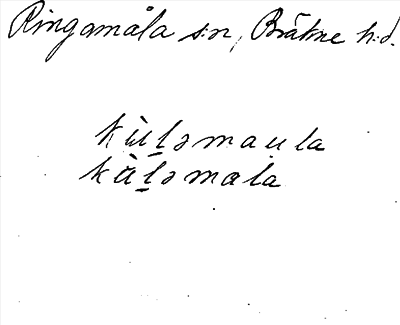 Ringamåla s:n, Bräkne h:d.
kùḻəmau̯la
kùḻəmala